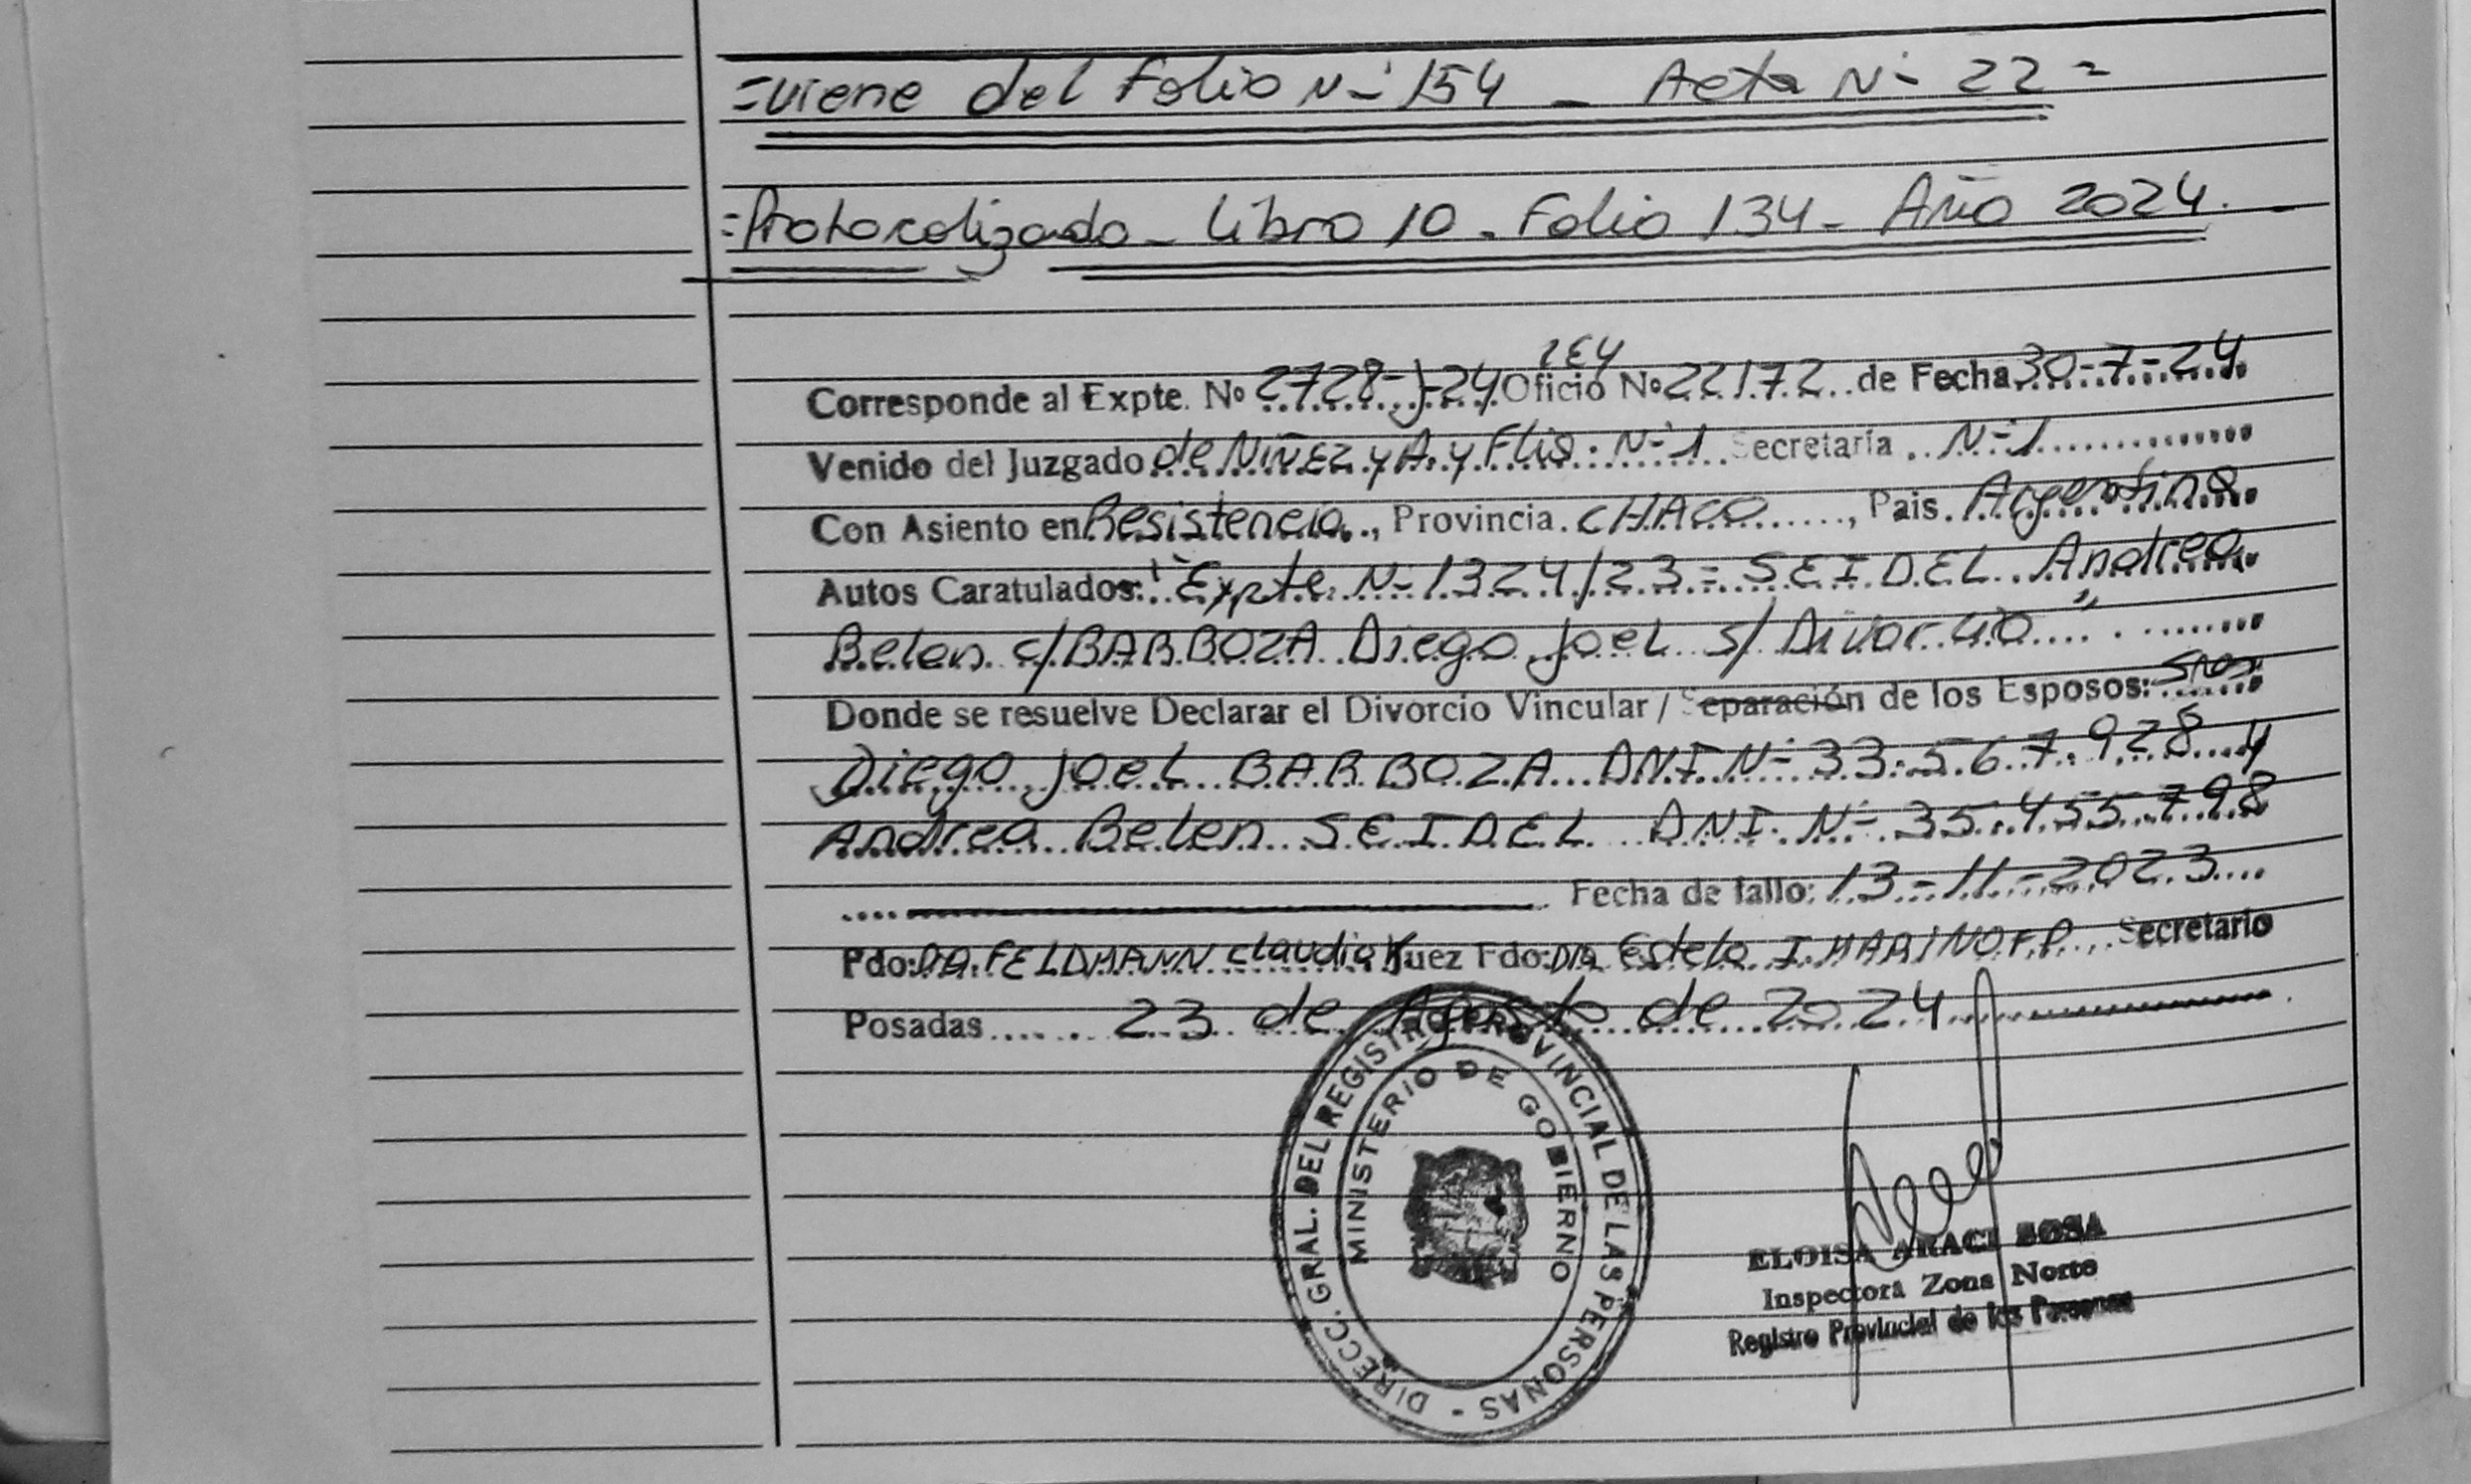 =viene del Folio N- 154 - Acta N- 22=
=Protocolizado - Libro 10 - Folio 134 - Año 2024.-
LEY
Corresponde al Expte. Nº 2728-J-24 Oficio Nº 22172 de Fecha 30-7-24
Venido del Juzgado de NIÑEZ y A. y Flia. N-1 Secretaría N-1
Con Asiento en Resistencia, Provincia CHACO, Pais Argentina
Autos Caratulados: "Expte N- 1324/23 = SEIDEL Andrea
Belen c/BARBOZA Diego Joel s/ Divorcio"
Donde se resuelve Declarar el Divorcio Vincular / Separación de los Esposos: Sres
Diego Joel BARBOZA DNI N- 33.567.928 y
Andrea Belen SEIDEL DNI N- 35.455.798
Fecha de fallo: 13-11-2023
Fdo: DA. FELDMANN Claudia Juez Fdo: DRA Estela I. MARINOFF Secretario
Posadas 23 de Agosto de 2024
DIRECC. GRAL. DEL REGISTRO PROVINCIAL DE LAS PERSONAS -
MINISTERIO DE GOBIERNO
ELOISA ARACI SOSA
Inspectora Zona Norte
Registro Provincial de las Personas